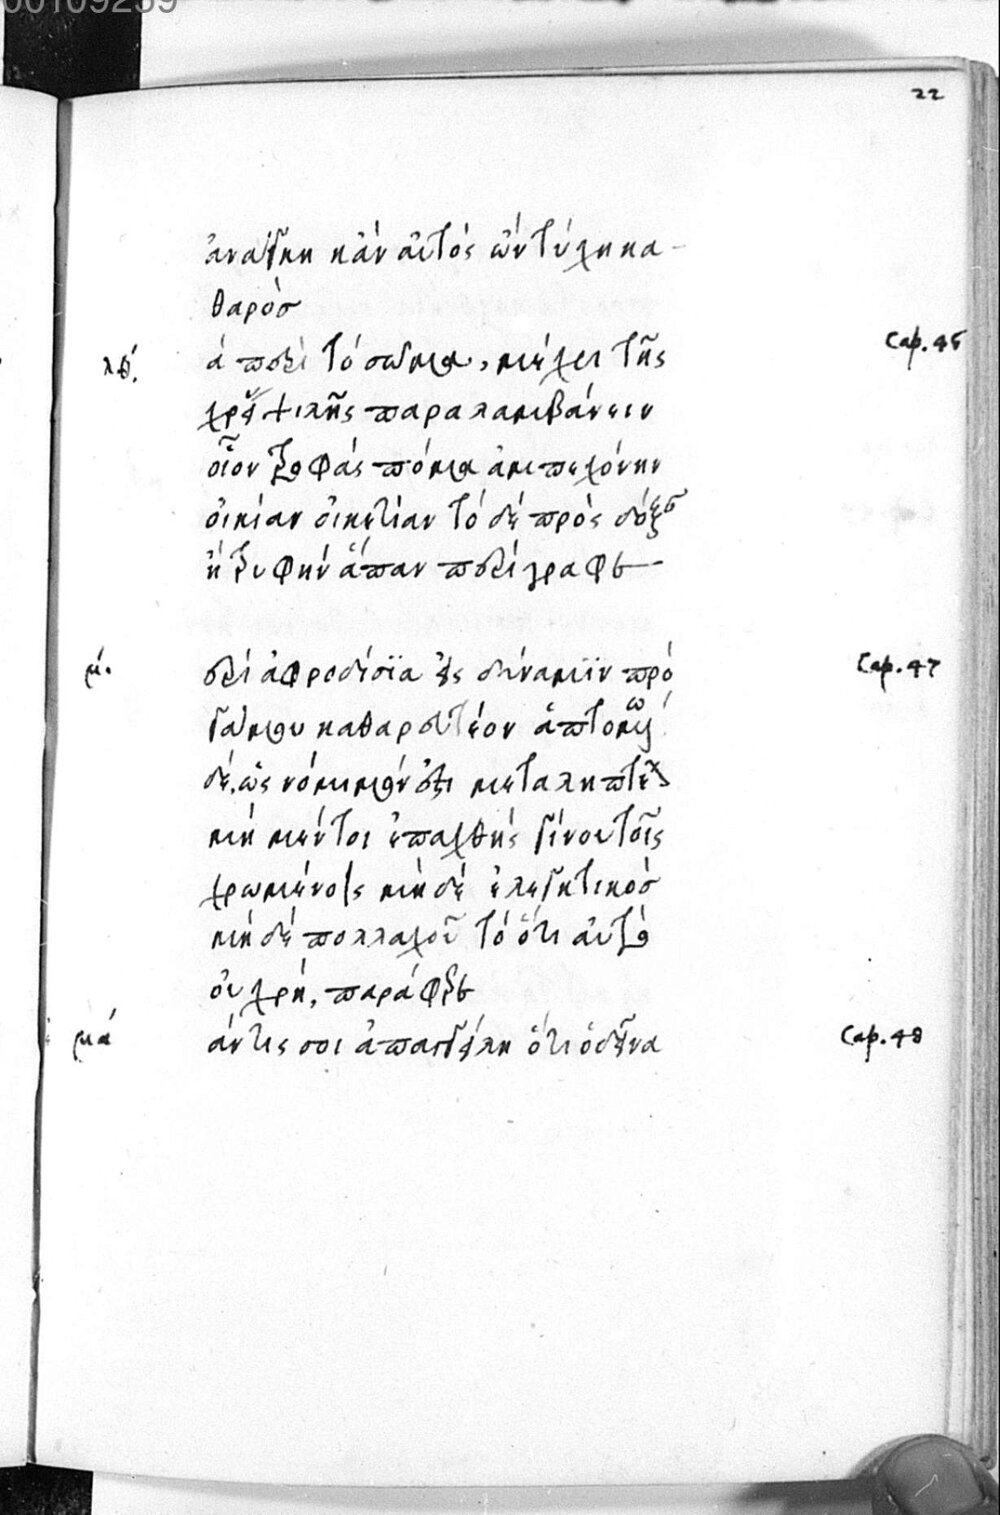 22
ἀνάγκη κἂν αὐτὸς ὢν τύχη κα-
θαρὸσ
λθ΄. ἁ περὶ τὸ σῶμα, μέχρι τῆς Cap. 45
χρείας ψιλῆς παραλαμβάνειν
οἷον τροφὰς πόμα ἀμπεχόνην
οἰκίαν οἰκετίαν τὸ δὲ πρὸς δόξαν
ἢ τρυφὴν ἅπαν περίγραφε
μ΄. περὶ ἀφροδίσϊα εἰς δύναμϊν πρὸ Cap. 47
γάμου καθαρευτέον ἁπτομένω
δέ, ὡς νόμιμόν ἐστι μεταληπτέον
μὴ μέντοι ἐπαχθὴς γίνου τοῖς
χρωμένοις μὴ δὲ ἐλεγκτικὸσ
μὴ δὲ πολλαχοῦ τὸ ὅτι αὐτὸ
οὐ χρῆ, παράφερε
μα΄ ἄν τις σοι ἀπαγγείλη ὅτι ὁ δεῖνα Cap. 48